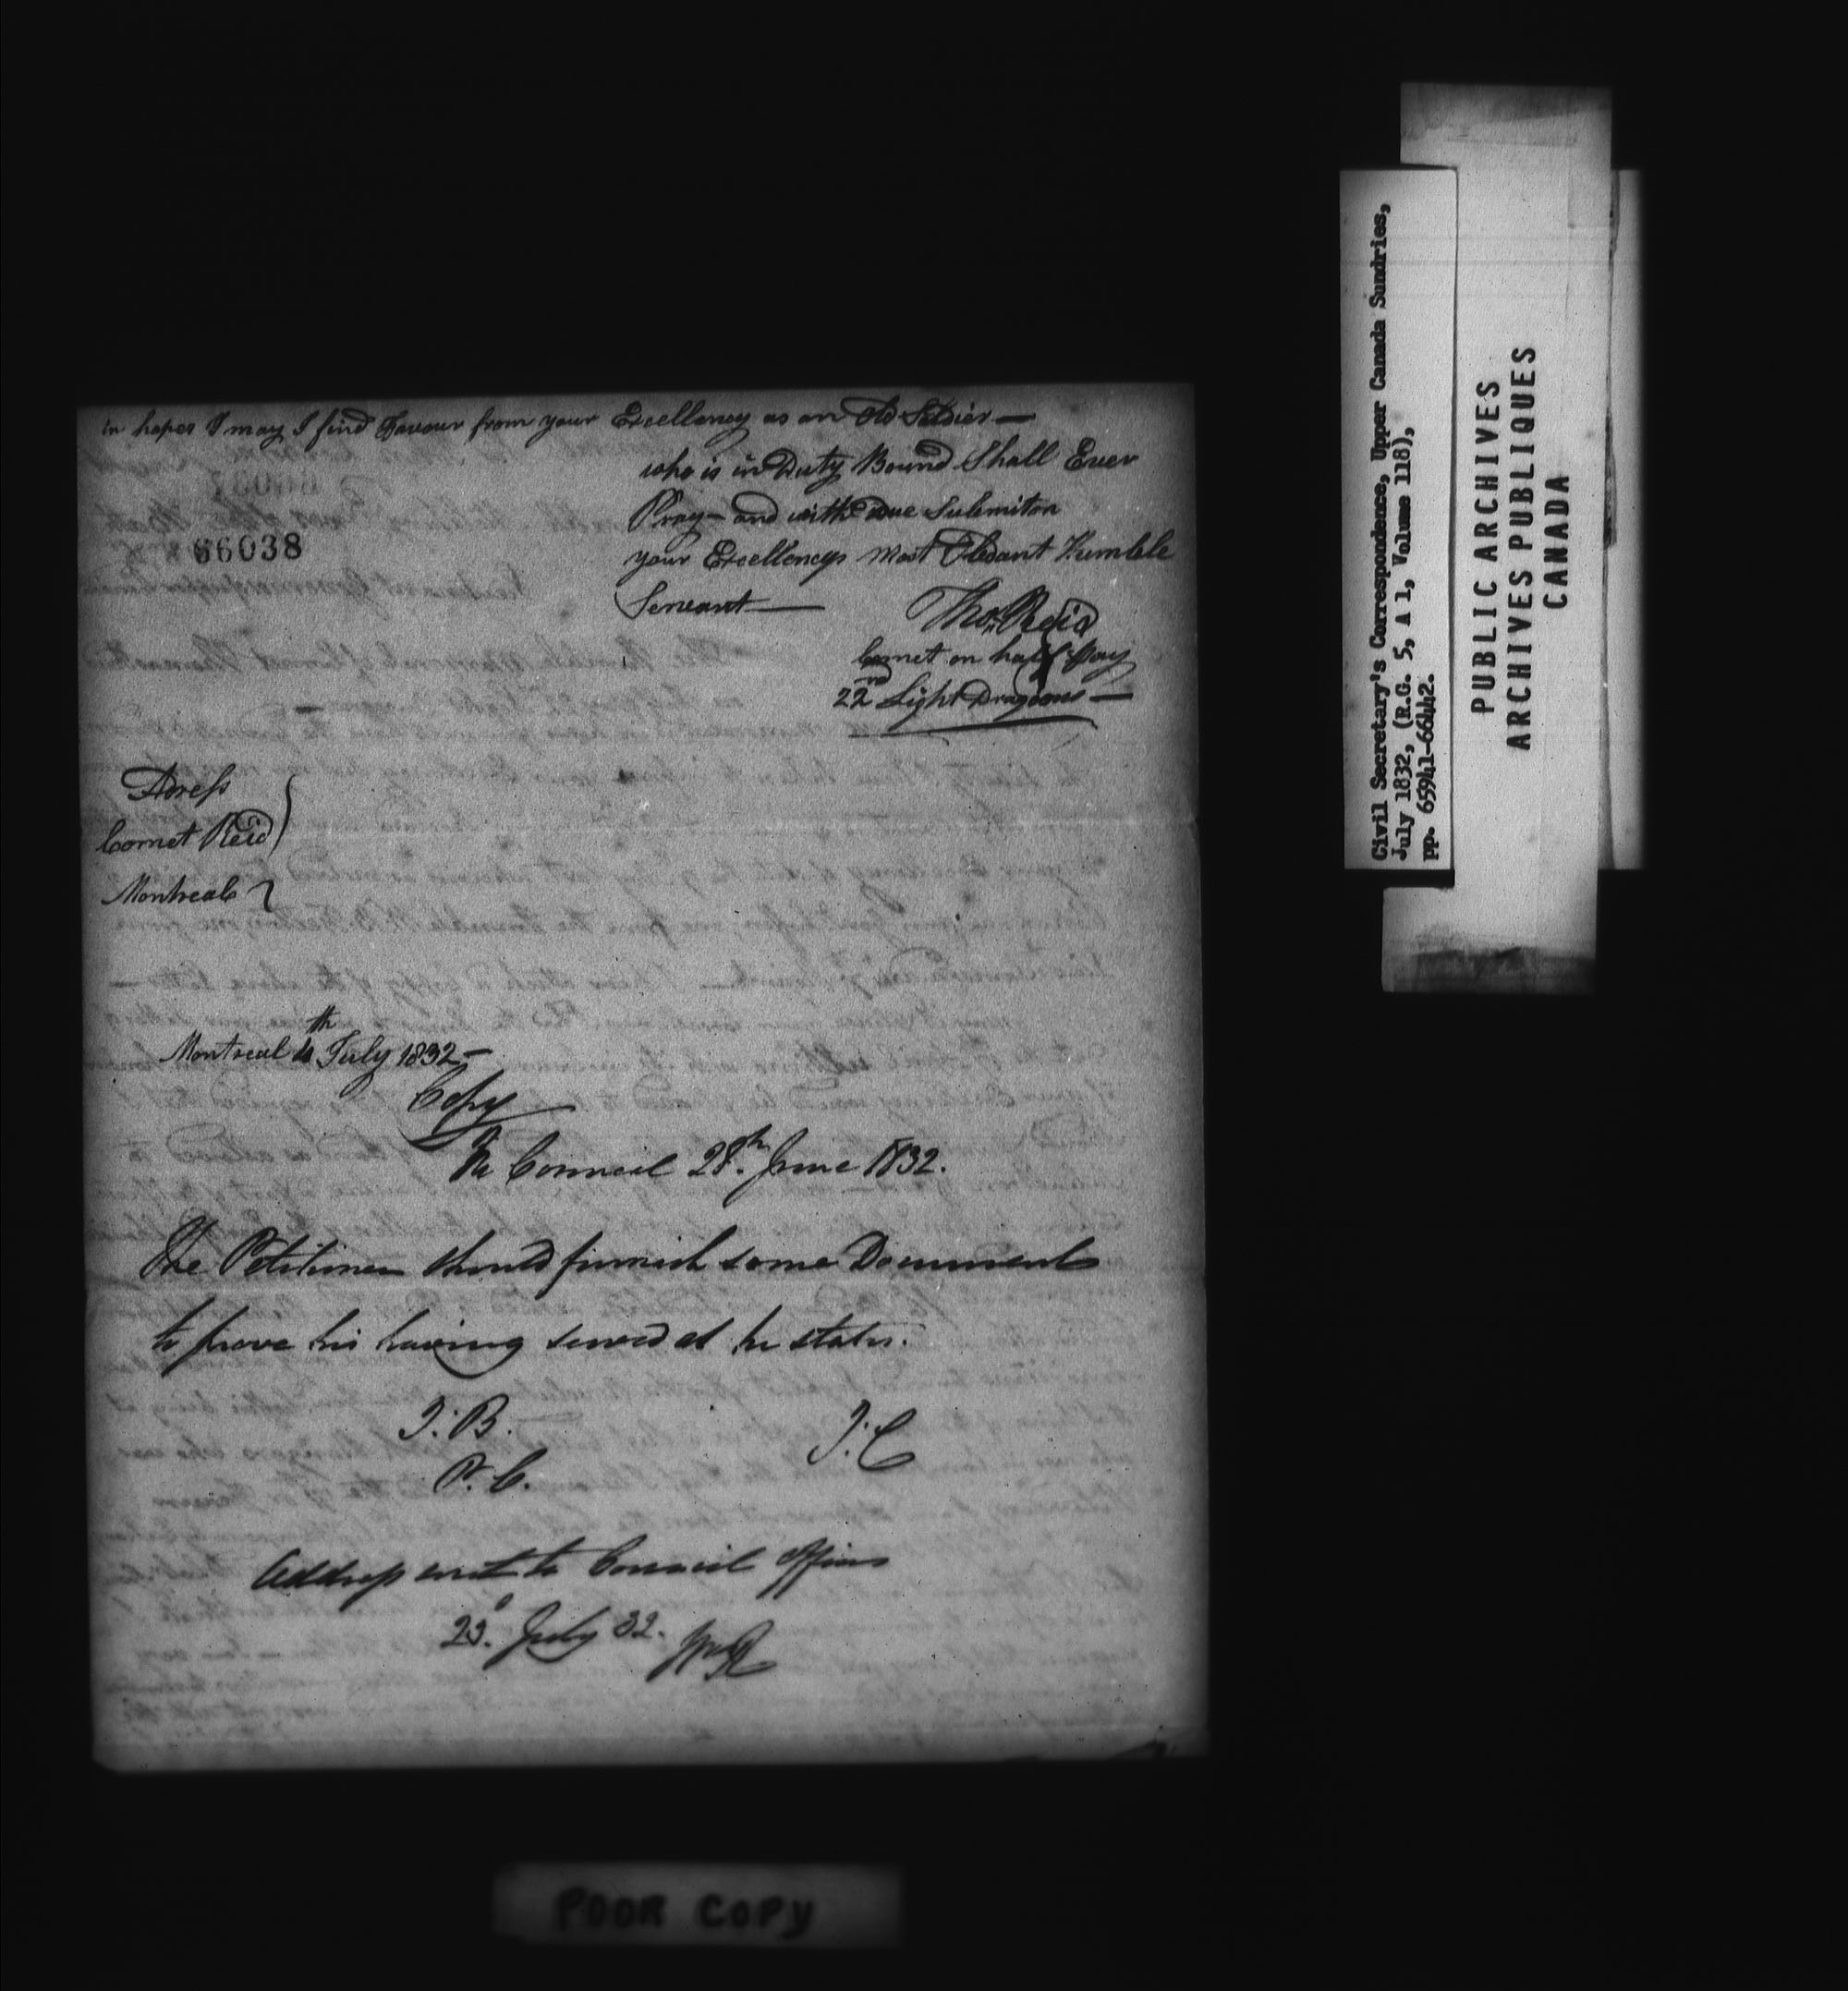 in hopes I may I find Favour from your Excellency as an Old Soldier—
who is in Duty Bound Shall Ever
Pray— and with due Submiton
your Excellencys most Obedant Humble
Servant—
66038
Thos Reid
Cornet on half Pay
22nd Light Dragoons—
Adress
Cornet Reid
Montreal
Montreal 4th July 1832—
Copy
In Council 28th June 1832.
The Petitioner should furnish some Documents
to prove his having served as he states.
J.B.
P.C.
J.C
Address sent to Council Office
23d July 32.
Civil Secretary's Correspondence, Upper Canada Sundries,
July 1832, (R.G. 5, A 1, Volume 118),
pp. 65941-66442.
PUBLIC ARCHIVES
ARCHIVES PUBLIQUES
CANADA
POOR COPY